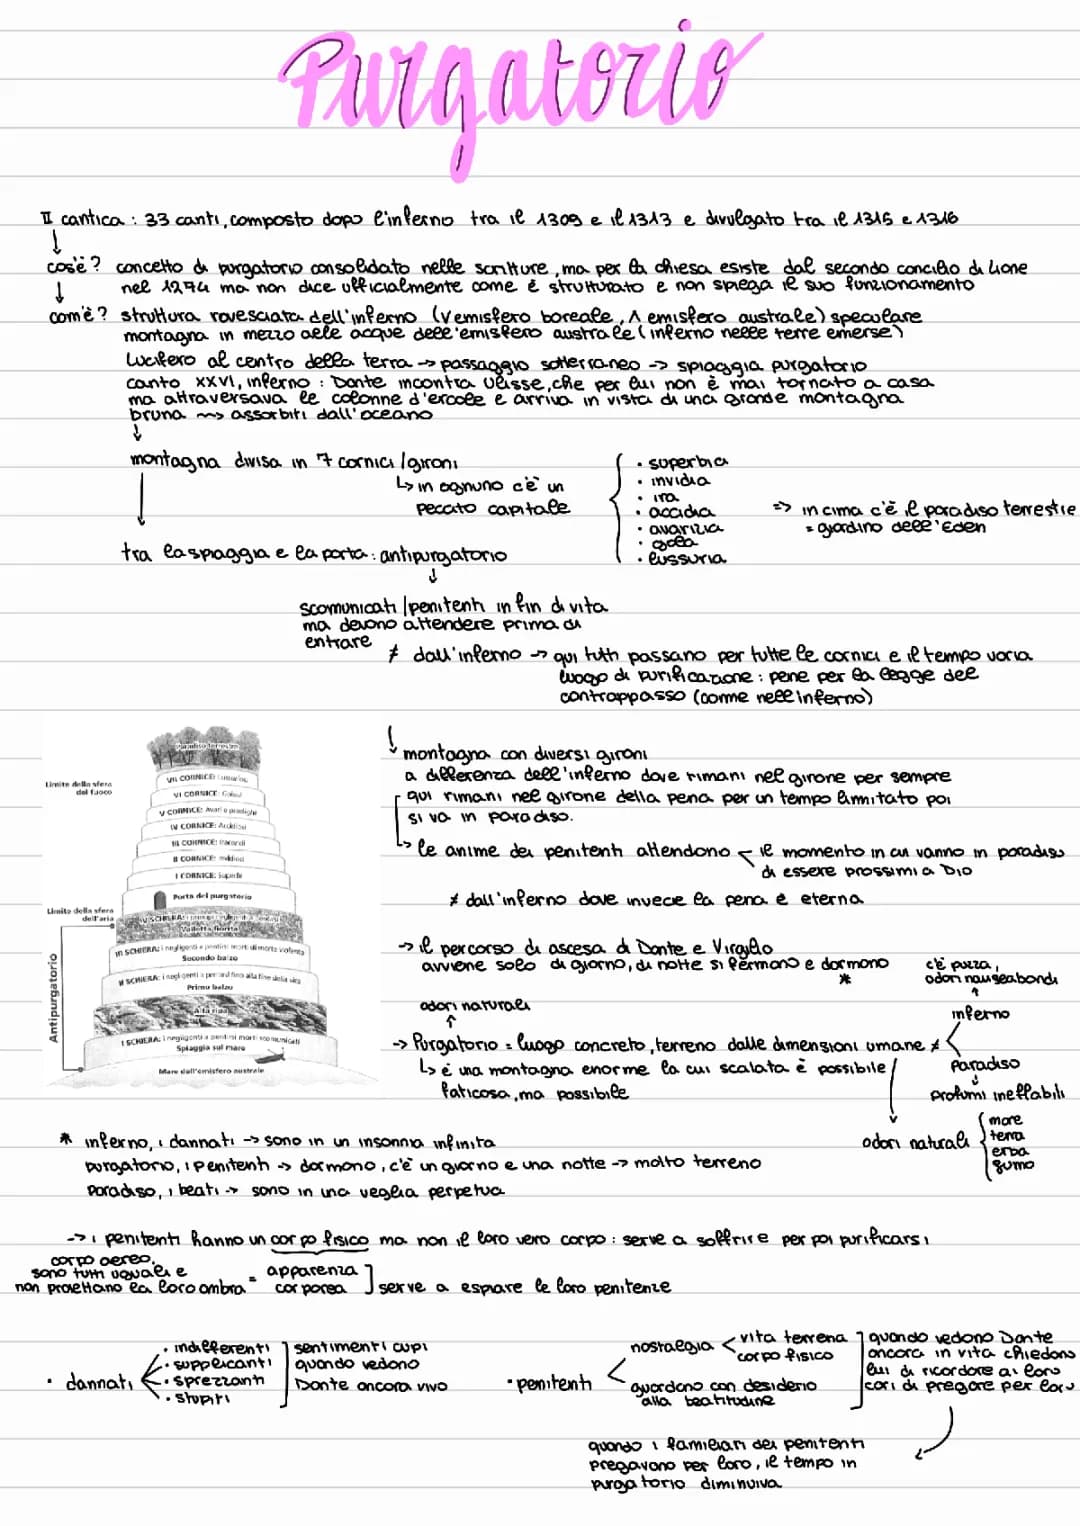 Purgatorio
II cantica : 33 canti, composto dopo l'inferno tra il 1309 e il 1313 e divulgato tra il 1315 e 1316
cos'è? concetto di purgatorio consolidato nelle scritture, ma per la chiesa esiste dal secondo concilio di Lione
nel 1274 ma non dice ufficialmente come è strutturato e non spiega il suo funzionamento
com'è? struttura rovesciata dell'inferno (V emisfero boreale, Λ emisfero australe) speculare
montagna in mezzo alle acque dell'emisfero australe (inferno nelle terre emerse)
Lucifero al centro della terra -> passaggio sotterraneo -> spiaggia purgatorio
canto XXVI, inferno : Dante incontra Ulisse, che per lui non è mai tornato a casa
ma attraversava le colonne d'ercole e arriva in vista di una grande montagna
bruna ~> assorbiti dall'oceano
montagna divisa in 7 cornici/gironi
↳ in ognuno c'è un
peccato capitale
• superbia
• invidia
• ira
• accidia
• avarizia
• gola
• lussuria
=> in cima c'è il paradiso terrestre
= giardino dell'Eden
tra la spiaggia e la porta : antipurgatorio
scomunicati/penitenti in fin di vita
ma devono attendere prima di
entrare
≠ dall'inferno -> qui tutti passano per tutte le cornici e il tempo varia
luogo di purificazione : pene per la legge del
contrappasso (come nell'inferno)
montagna con diversi gironi
a differenza dell'inferno dove rimani nel girone per sempre
qui rimani nel girone della pena per un tempo limitato poi
si va in paradiso.
↳ le anime dei penitenti attendono < il momento in cui vanno in paradiso
di essere prossimi a Dio
≠ dall'inferno dove invece la pena è eterna
Paradiso terrestre
Limite della sfera
del fuoco
VII CORNICE: Lussuriosi
VI CORNICE: Golosi
V CORNICE: Avari e prodighi
IV CORNICE: Accidiosi
III CORNICE: Iracondi
II CORNICE: Invidiosi
I CORNICE: Superbi
Porta del purgatorio
Limite della sfera
dell'aria
IV SCHIERA:
Valletta fiorita
III SCHIERA: i negligenti e pentiti morti di morte violenta
Secondo balzo
II SCHIERA: i negligenti e pentiti fino alla fine della vita
Primo balzo
Alta ripa
I SCHIERA: i negligenti e pentiti morti scomunicati
Spiaggia sul mare
Mare dell'emisfero australe
Antipurgatorio
-> il percorso di ascesa di Dante e Virgilio
avviene solo di giorno, di notte si fermano e dormono
*
c'è puzza,
odori nauseabondi
↑
inferno
odori naturali
↑
-> Purgatorio = luogo concreto, terreno dalle dimensioni umane ≠ <
Paradiso
↓
profumi ineffabili
↳ è una montagna enorme la cui scalata è possibile
faticosa, ma possibile
odori naturali
mare
terra
erba
fumo
* inferno, i dannati -> sono in un insonnia infinita
purgatorio, i penitenti -> dormono, c'è un giorno e una notte -> molto terreno
Paradiso, i beati -> sono in una veglia perpetua
-> i penitenti hanno un corpo fisico ma non il loro vero corpo : serve a soffrire per poi purificarsi
corpo aereo,
sono tutti uguali e
non proiettano la loro ombra
= apparenza
corporea
] serve a espiare le loro penitenze
• dannati
• indifferenti
• supplicanti
• sprezzanti
• stupiti
sentimenti cupi
quando vedono
Dante ancora vivo
• penitenti
nostalgia < vita terrena
corpo fisico
guardano con desiderio
alla beatitudine
quando vedono Dante
ancora in vita chiedono
lui di ricordare ai loro
cari di pregare per loro
quando i familiari dei penitenti
pregavano per loro, il tempo in
purgatorio diminuiva